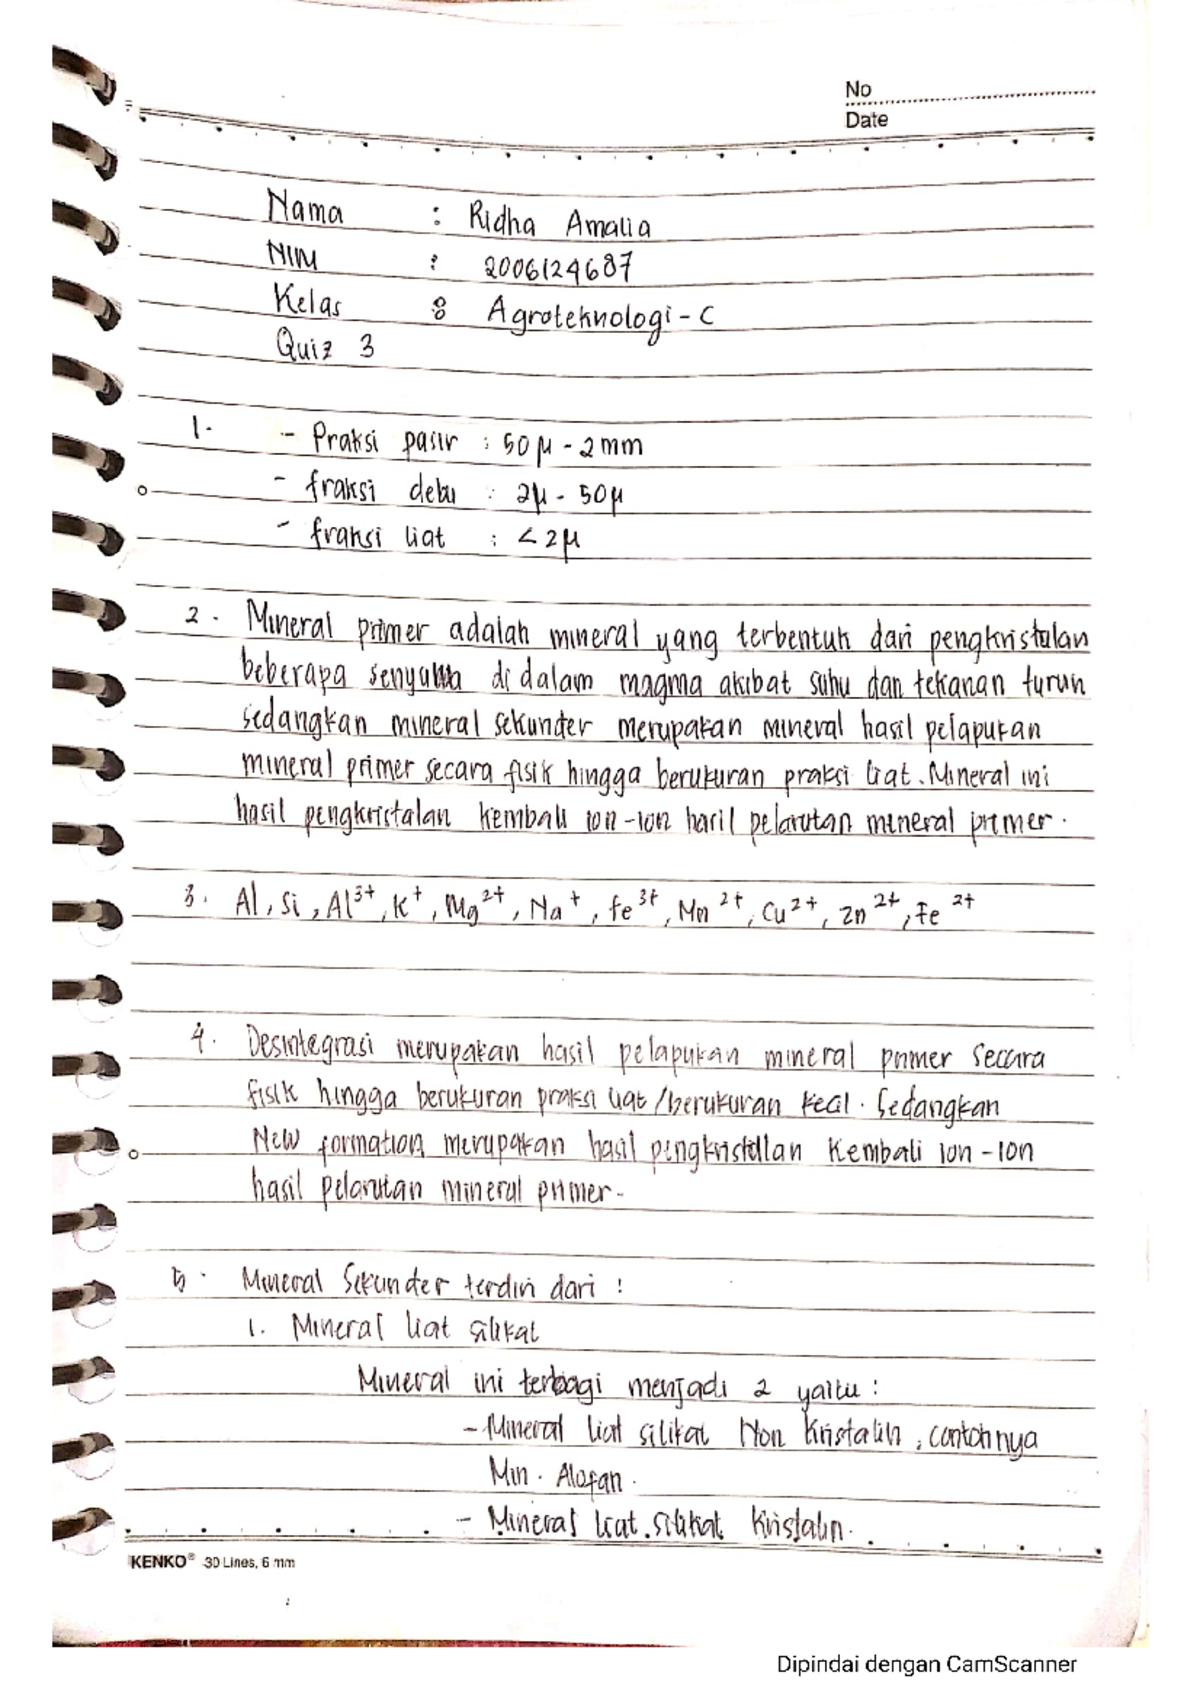 No
Date
Nama : Ridha Amalia
NIM : 2006124687
Kelas : Agroteknologi - C
Quiz 3
1. - Praksi pasir : 50 μ - 2 mm
- fraksi debu : 2μ - 50μ
- fraksi liat : < 2μ
2. Mineral primer adalah mineral yang terbentuk dari pengkristalan
beberapa senyawa di dalam magma akibat suhu dan tekanan turun
sedangkan mineral sekunder merupakan mineral hasil pelapukan
mineral primer secara fisik hingga berukuran praksi liat. Mineral ini
hasil pengkristalan kembali ion-ion hasil pelarutan mineral primer.
3. Al, Si, Al³⁺, K⁺, Mg²⁺, Na⁺, Fe³⁺, Mn²⁺, Cu²⁺, Zn²⁺, Fe²⁺
4. Desintegrasi merupakan hasil pelapukan mineral primer secara
fisik hingga berukuran praksi liat /berukuran kecil. Sedangkan
New formation merupakan hasil pengkristallan kembali ion-ion
hasil pelarutan mineral primer-
5. Mineral Sekunder terdiri dari :
1. Mineral liat silikat
Mineral ini terbagi menjadi 2 yaitu :
- Mineral liat silikat Non Kristalin, contohnya
Min. Alofan.
- Mineral liat silikat Kristalin.
KENKO® 30 Lines, 6 mm
Dipindai dengan CamScanner